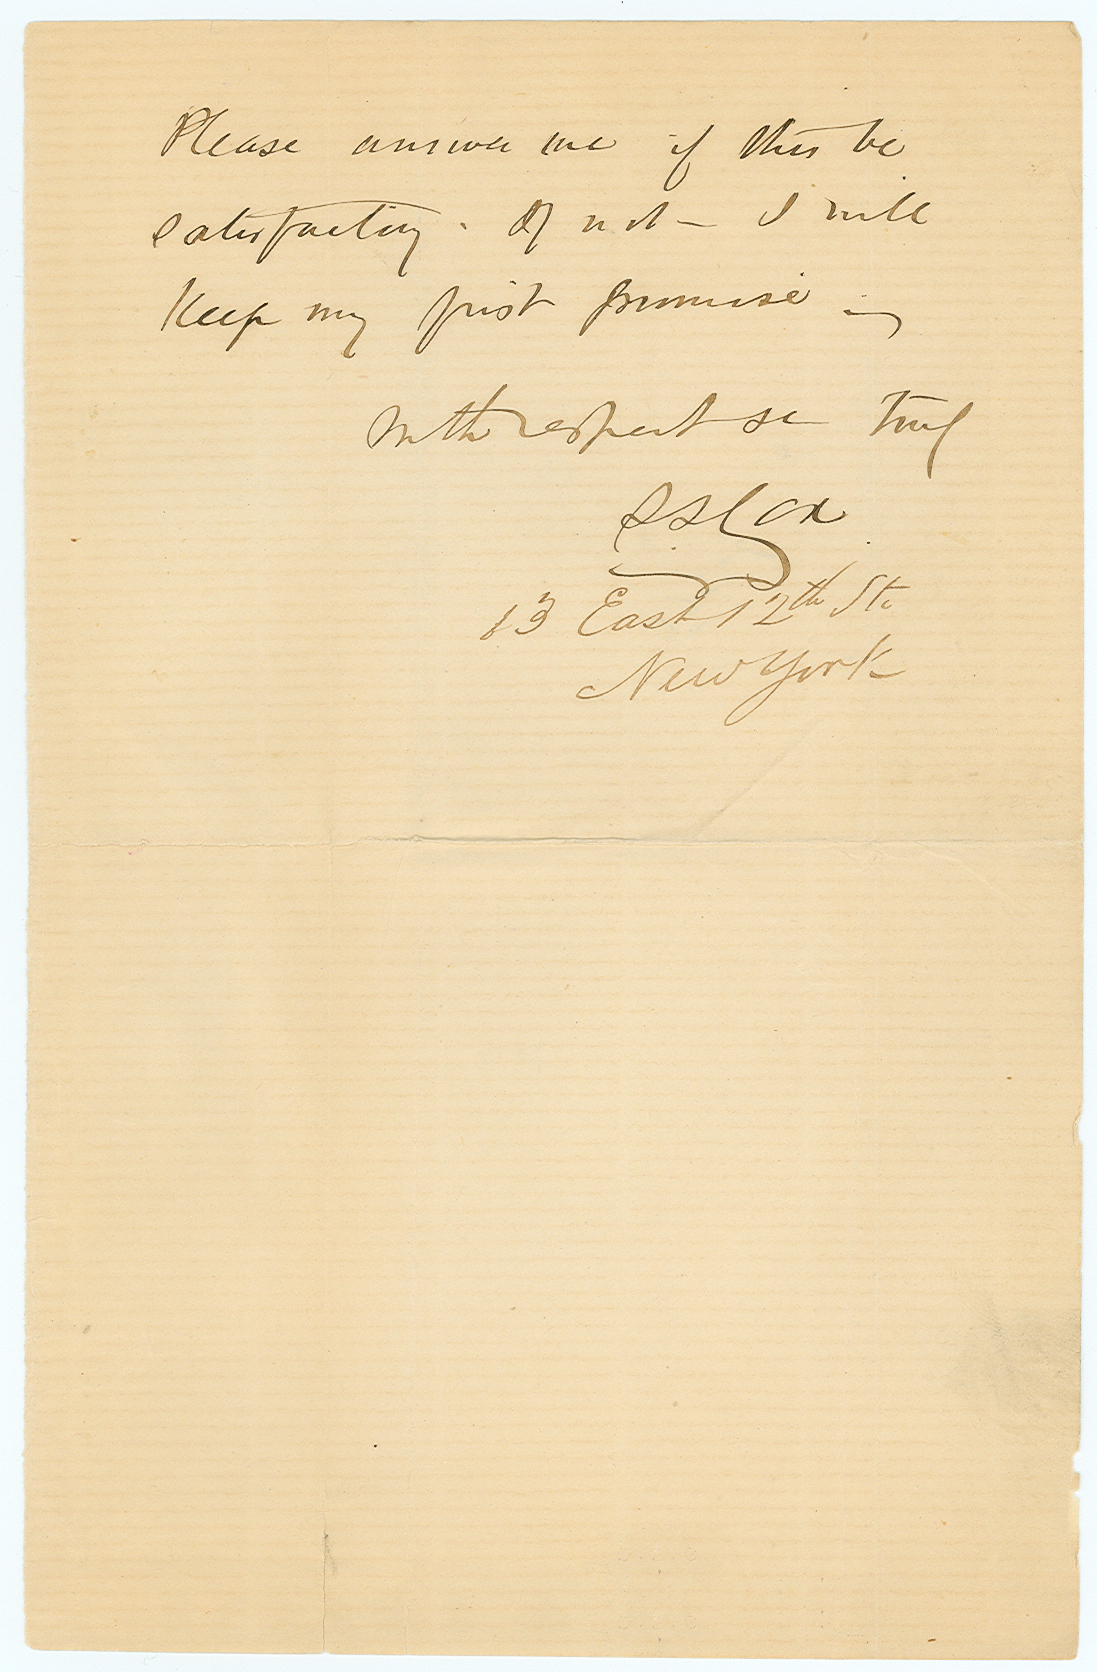 Please answer me if this be
satisfactory. If not – I will
Keep my first promise –
With respect &c Truly
S S Cox
13 East 12th St.
New York